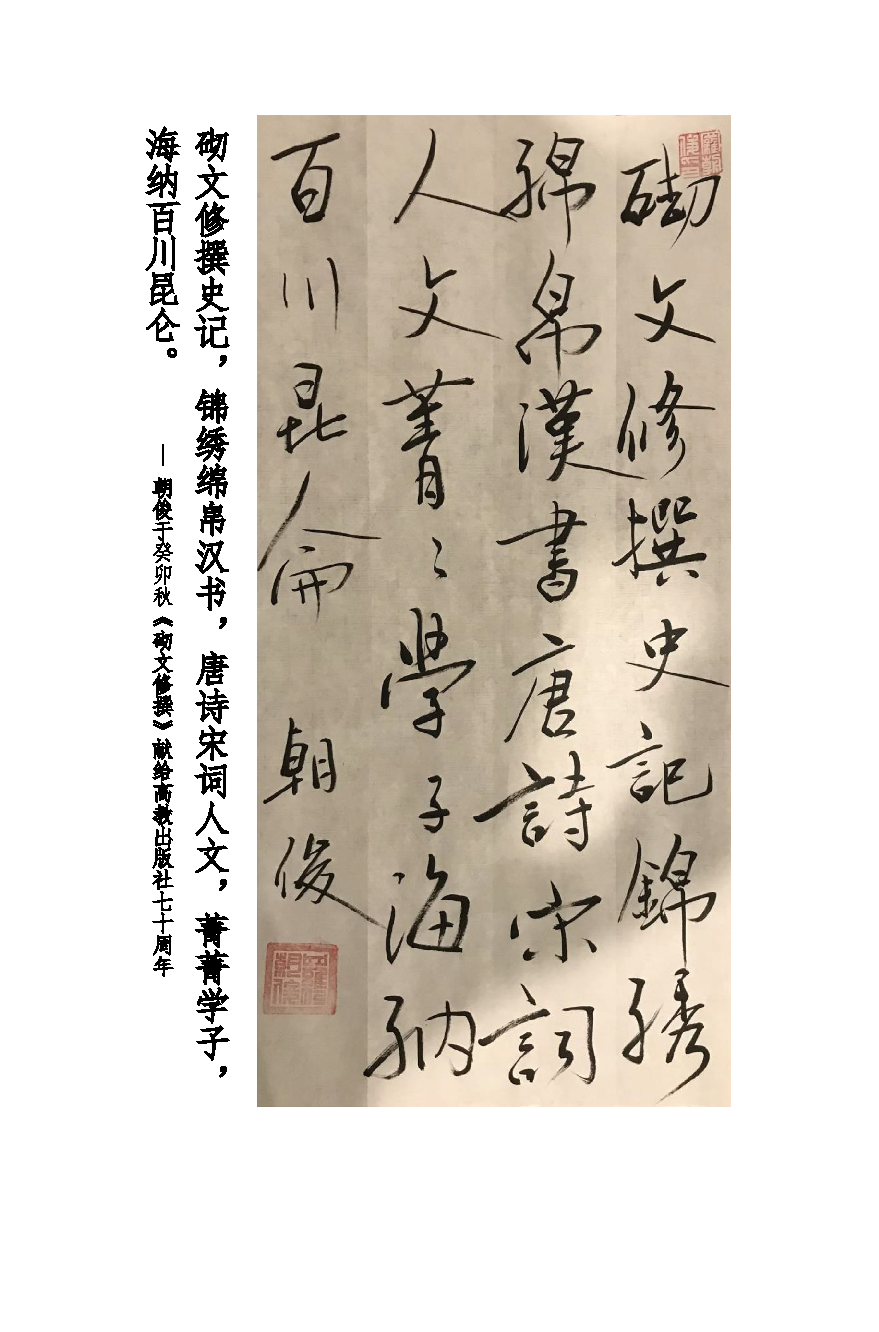 砌文修撰史記錦綉
綿帛漢書唐詩宋詞
人文菁〻學子海納
百川昆侖 朝俊
砌文修撰史记，锦绣绵帛汉书，唐诗宋词人文，菁菁学子，
海纳百川昆仑。 — 朝俊于癸卯秋《砌文修撰》献给高教出版社七十周年